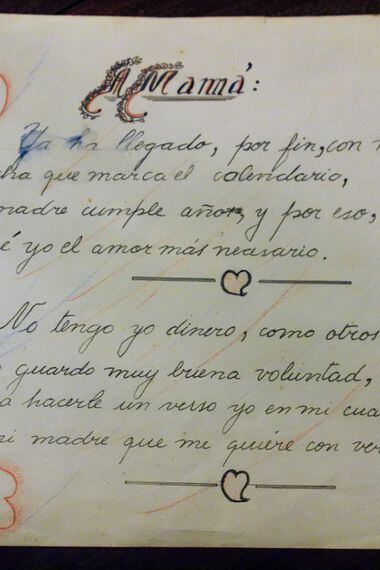 A Mamá:
Ya ha llegado, por fin, con
que marca el calendario,
madre cumple años, y por eso,
yo el amor más necesario.
No tengo yo dinero, como otros
guardo muy buena voluntad,
hacerle un verso yo en mi
madre que me quiere con